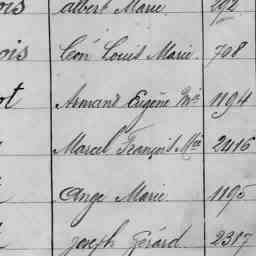 ois Albert Marie 292
ois Léon Louis Marie 708
ot Armand Eugène Mie 1194
Marcel François Mie 2416
Ange Marie 1195
Joseph Gérard 2317